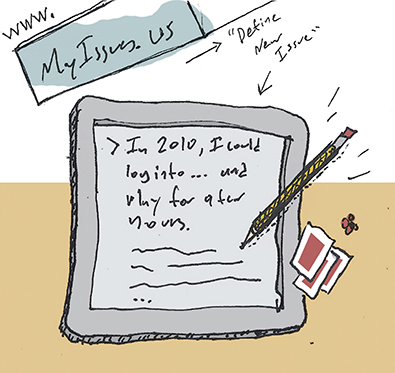 www.
MyIssues.us
"Define
New
Issue"
> In 2010, I could
log into... and
play for a few
hours.
...